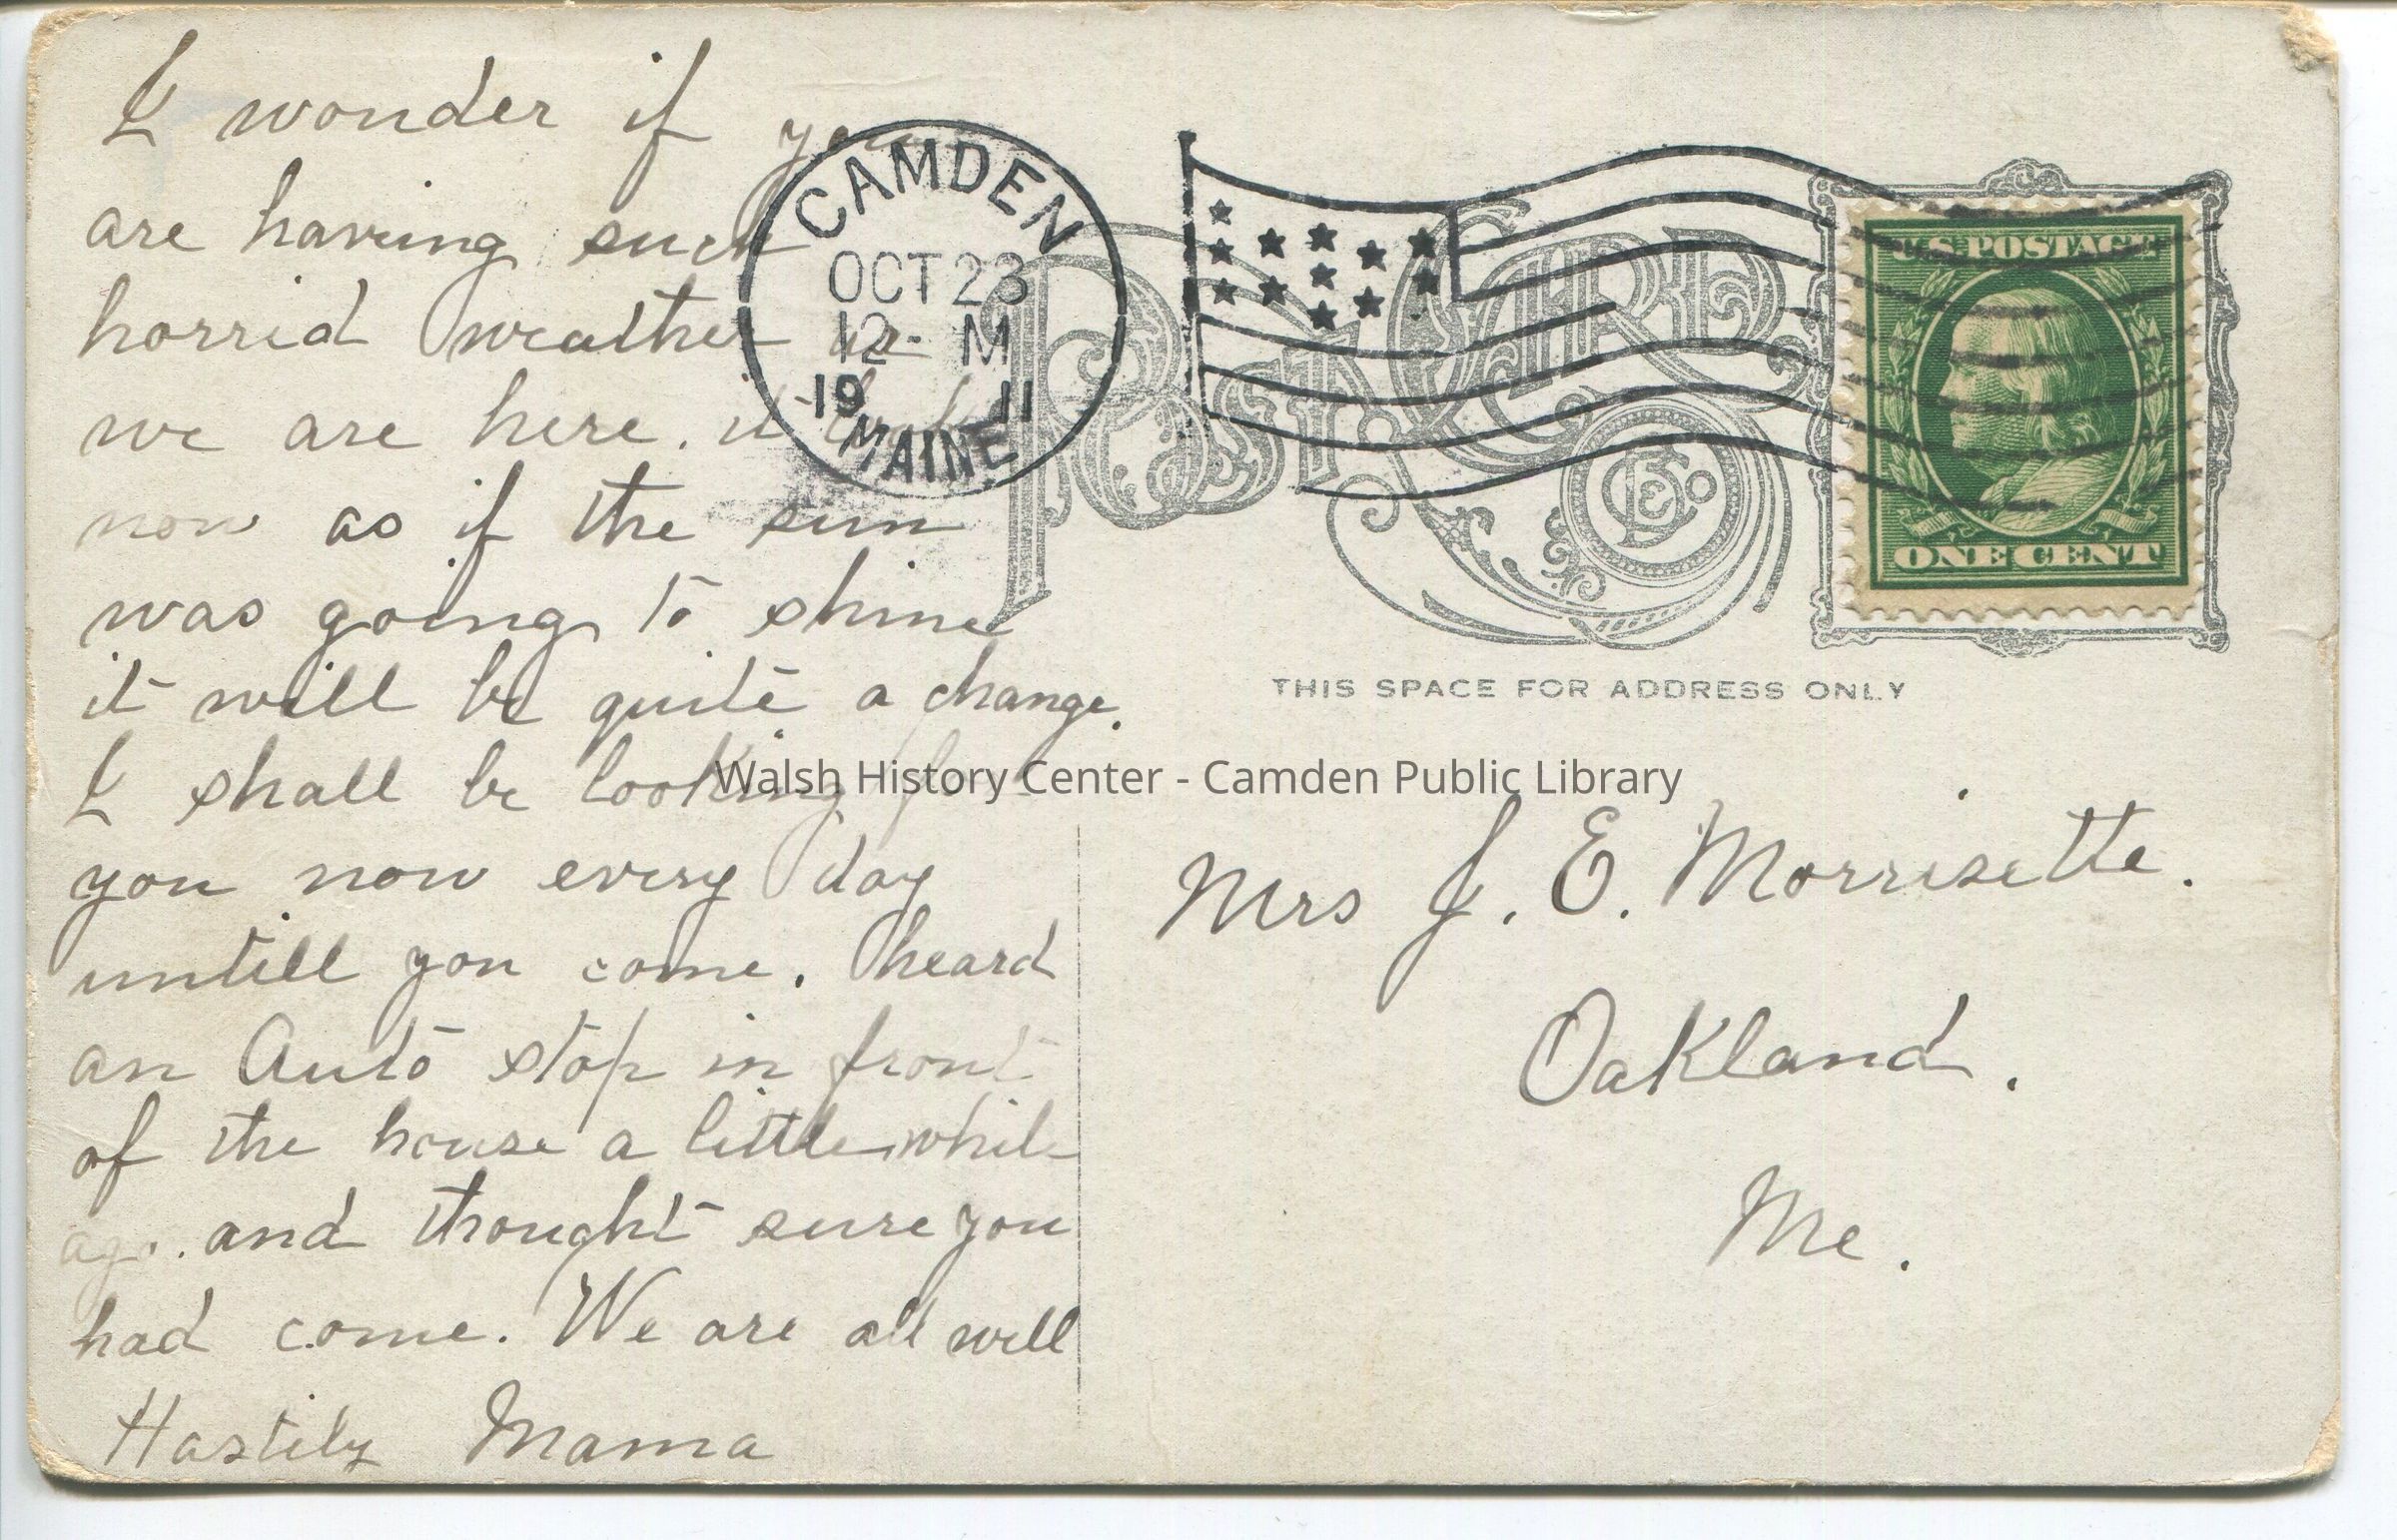 I wonder if you
are having such
horrid weather as
we are here. it looks
now as if the sun
was going to shine
it will be quite a change.
I shall be looking for
you now every day
untill you come. heard
an Auto stop in front
of the house a little while
ago. and thought sure you
had come. We are all well
Hastily Mama
CAMDEN
OCT 23
12 - M
19 11
MAINE
POST CARD
U.S. POSTAGE
ONE CENT
THIS SPACE FOR ADDRESS ONLY
Walsh History Center - Camden Public Library
Mrs J. E. Morrisette.
Oakland.
Me.